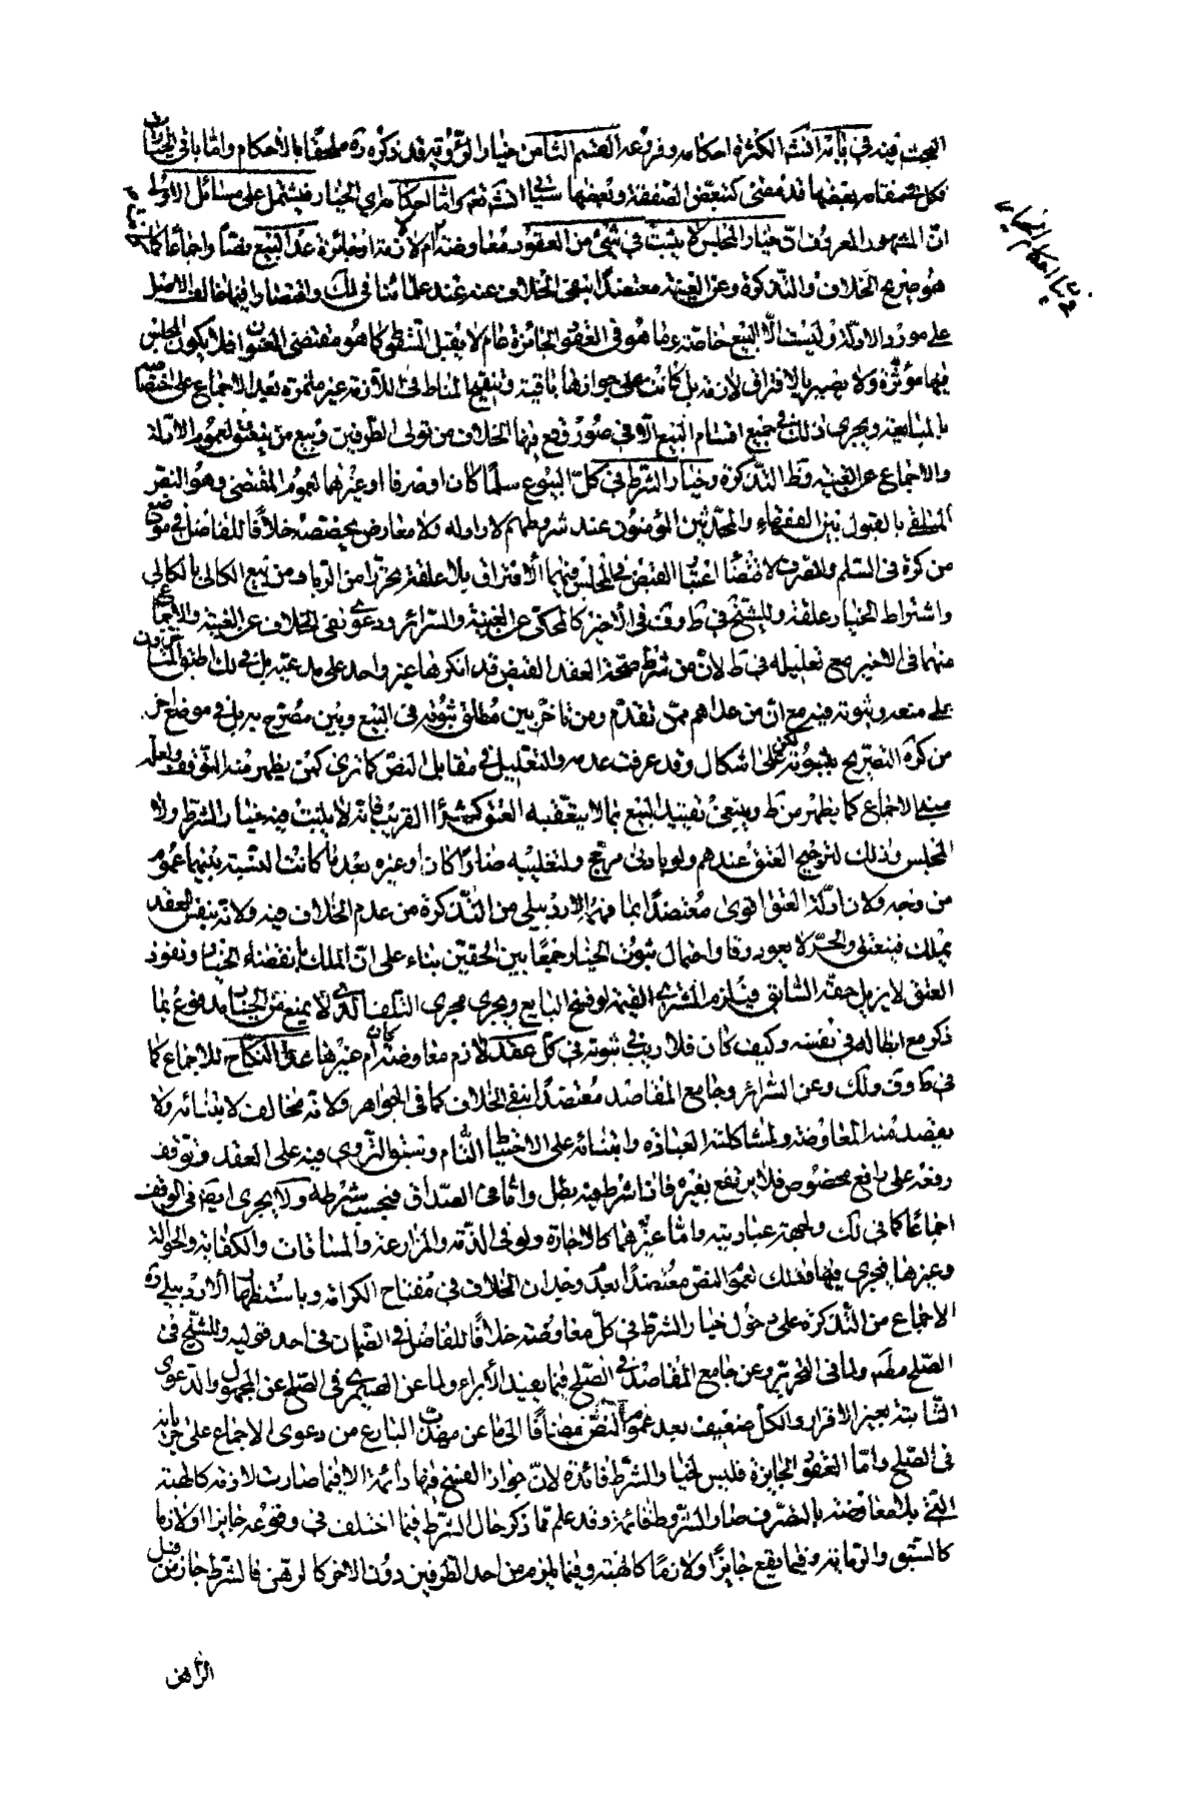 البحث فيه في بابه انشاء الله لكثرة احكامه وفروعه القسم الثامن خيار الرؤية قد ذكره ره ملحقا بالاحكام واما باقي الخيارات
فكل في مقامه بعضها قد مضى كتبعض الصفقة وبعضها سيأتي انشاء الله تعالى واما احكامه اي الخيار فيشتمل على مسائل الاولى
ان المشهور المعروف ان خيار المجلس لا يثبت في شيء من العقود معاوضة ام لا لازمة او جائزة عدا البيع نصا واجماعا كما
هو صريح الخلاف والتذكرة وعن الغنية معتضدا بنفي الخلاف عنه عند علمائنا في لك واقتصارا فيما خالف الاصل
على مورد الادلة وليست الا البيع خاصة وما هو في العقود الجائزة عام لا يقبل السقوط كما هو مقتضى العنوان فلا يكون المجلس
فيها مؤثرة ولا يصير بالافتراق لازمة بل كانت على جوازها باقية وتنقيح المناط في اللازمة غير مثمرة بعد الاجماع على اختصاصه
بالمبايعة ويجري ذلك في جميع اقسام البيع الا في صور وقع فيها الخلاف من تولى الطرفين وبيع من ينعتق لعموم الادلة
والاجماع عن الغنية وط التذكرة وخيار الشرط في كل البيوع سلما كان او صرفا او غيرهما لعموم المقتضى وهو النص
المتلقى بالقبول بين الفقهاء والمحدثين المؤمنون عند شروطهم لا راد له ولا معارض يخصصه خلافا للفاضل في موضع
من كرة في السلم والصرف لاقتضاء اعتبار القبض في المجلس فيهما الافتراق بلا علقة تحرزا من الربا ومن بيع الكالي بالكالي
واشتراط الخيار علقة وللشيخ في ط وف في الاخير كالمحكي عن الغنية والسرائر ودعوى نفي الخلاف عن الغنية والاجماع
منهما في الاخير مع تعليله في ط لان من شرط صحة العقد القبض قد انكرها غير واحد على مدعيه بل في لك اطبق المتأخرون
على منعه وثبوته فيه مع ان من عداهم ممن تقدم ومن تأخر بين مطلق ثبوته في البيع وبين مصرح به بل في موضع اخر
من كرة التصريح بثبوته لكن على اشكال وقد عرفت عدمه والتعليل في مقابل النص كما ترى كمن يظهر منه التوقف ولعله
مبني الاجماع كما يظهر من ط وينبغي تقييد البيع بما لا يتعقبه العتق كشراء القريب فانه لا يثبت فيه خيار الشرط ولا
المجلس وذلك لترجيح العتق عندهم ولو بادنى مرجح ولتغليبه ضارا كان او غيره بعد ما كانت النسبة بينهما عموم
من وجه وكان ادلة العتق اقوى معتضدا بما فهمه الاردبيلي من التذكرة من عدم الخلاف فيه ولانه بنفس العقد
يملك فينعتق والحر لا يعود رقا واحتمال ثبوت الخيار جمعا بين الحقين بناء على ان الملك بانقضاء الخيار ونفوذ
العتق لا يزيل حقه السابق فيلزم المشتري القيمة لو فسخ البايع ويجري مجرى التلف الذي لا يمنع من الخيار مدفوع بما
ذكر مع ابطاله في نفسه وكيف كان فلا ريب في ثبوته في كل عقد لازم معاوضة كان ام غيرها عدا النكاح للاجماع كما
في ط وف ولك وعن السرائر وجامع المقاصد معتضدا بنفي الخلاف كما في الجواهر ولانه مخالف لابتنائه ولا
يقصد منه المعاوضة ولمشاكلته العبادة وابتنائه على الاحتياط التام وتسبق التروي فيه على العقد وتوقف
رفعه على رافع مخصوص فلا يرتفع بغيره فان اشرط فيه بطل واما في الصداق فيحسب شرطه ولا يجري ايضا في الوقف
اجماعا كما في لك ولجهة عباديته واما غيرهما كالاجارة ولو في الذمة والمزارعة والمساقات والكفالة والحوالة
وغيرها فيجري فيها وذلك لعموم النص معتضدا بعدم وجدان الخلاف في مفتاح الكرامة وباستظهار الاردبيلي ره
الاجماع من التذكرة على دخول خيار الشرط في كل معاوضة خلافا للفاضل في الضمان في احد قوليه وللشيخ في
الصلح مطلقا ولما في التحرير وعن جامع المقاصد في الصلح فيما يفيد الابراء ولما عن الصيمري في الصلح عن المجهول والدعوى
الثابتة بغير الاقرار والكل ضعيف بعد عموم النص مضافا الى ما عن مهذب البارع من دعوى الاجماع على جريانه
في الصلح واما العقود الجايزة فليس لخيار الشرط فائدة لان جواز الفسخ فيها دائمة الا فيما صارت لازمة كالهبة
التي بلا معاوضة بالتصرف صار الشرط قائمة وقد علم مما ذكر حال الشرط فيما اختلف في وقوعه جايزا او لازما
كالسبق والرماية وفيما يقع جايزا ولازما كالهبة وفيما يلزم من احد الطرفين دون الاخر كالرهن فالشرط جاز من قبل
الراهن
في احكام الخيارات